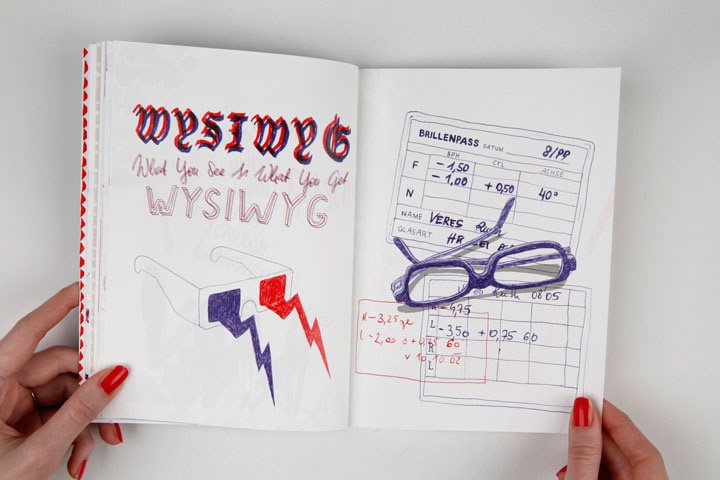 WYSIWYG
What You See Is What You Get
WYSIWYG
BRILLENPASS DATUM 8/99
SPH CYL ACHSE
F -1,50
-1,00 +0,50 40°
N
NAME VERES Ruth
GLASART HR
Ruth 08 05
-4,75
L -3,50 +0,75 60
R
L
R -3,25
L -2,00 60
V 10.10.02